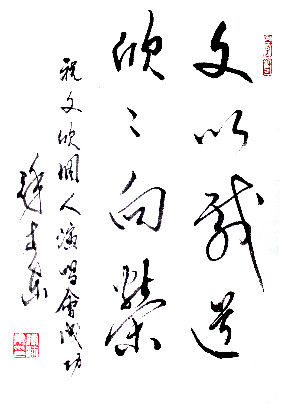 文以载道
欣〻向荣
祝文欣個人演唱會成功